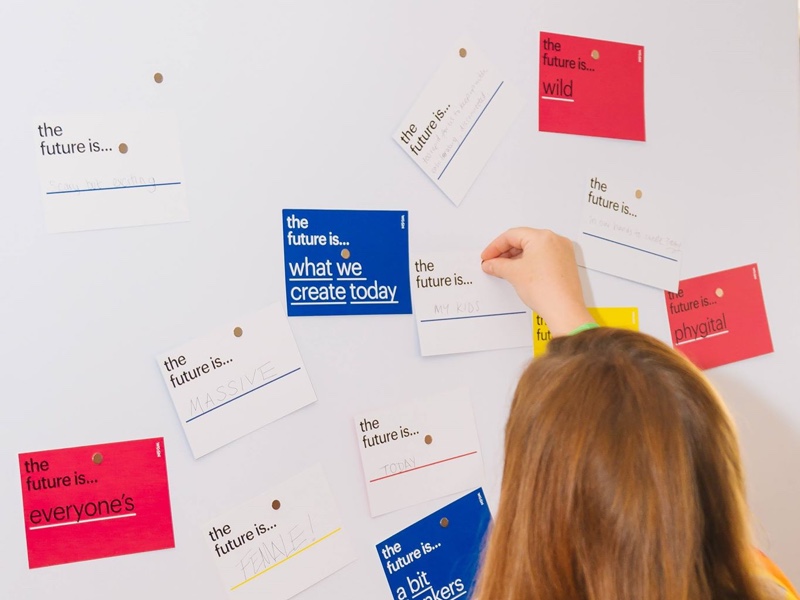 the
future is...
the
future is...
the
future is...
wild
the
future is...
the
future is...
what we
create today
the
future is...
MY KIDS
the
future is...
phygital
the
future is...
MASSIVE
the
future is...
TODAY
the
future is...
everyone's
the
future is...
FEMALE!
the
future is...
a bit